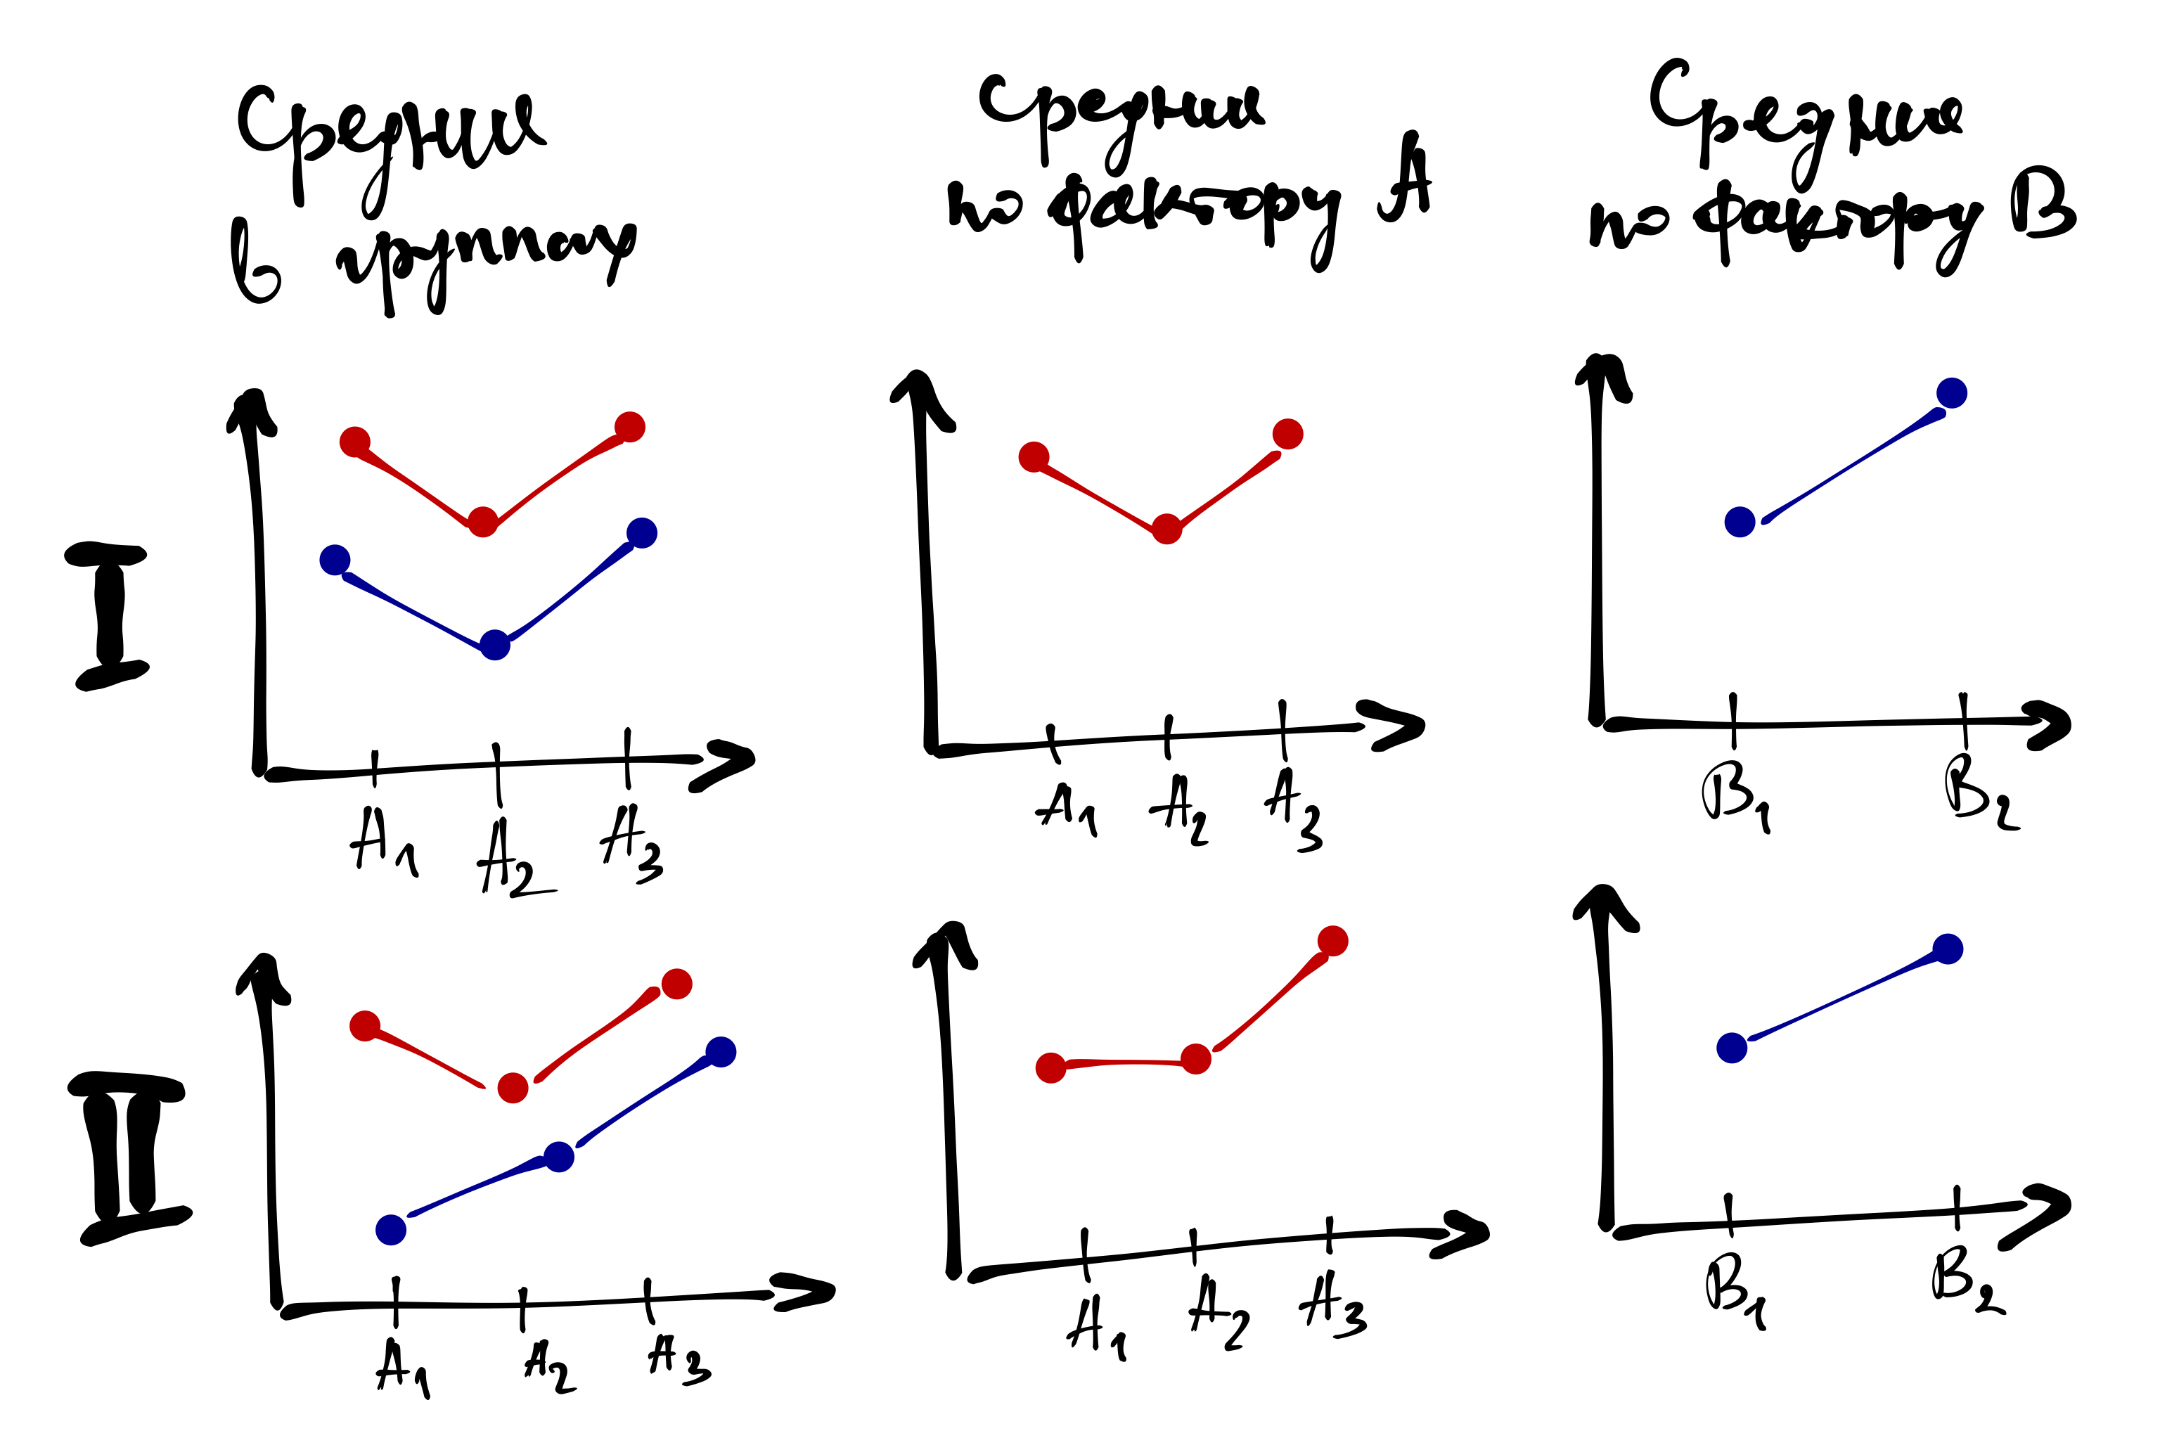 Средние
в группах
Средние
по фактору A
Средние
по фактору B
I
A1 A2 A3
A1 A2 A3
B1 B2
II
A1 A2 A3
A1 A2 A3
B1 B2